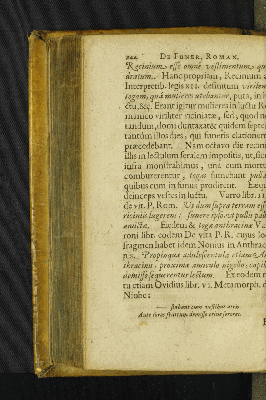 DE FUNER. ROMAN.
Recinium esse omne vestimentum qua
dratum. Hanc propriam, Recinium a
Interpretib. legis XII. definitum virilem
togam, quâ mulieres utebantur, puta, in l
ctu, &c. Erant igitur mulieres in luctu R
minico viriliter riciniatæ, sed, quod n
tandum, domi duntaxat & quidem septe
tantùm illos dies, qui funeris elationem
præcedebant. Nam octavo die recum
illis in lectulum feralem impositis, ut, sic
infra monstrabimus, una cum mortuo
comburerentur, togas sumebant pulla
quibus cum in funus prodirent. Eæqu
deinceps vestes in luctu. Varro lib. II
de vit. P. Rom. Ut dum supra terram e
riciniis lugerent: funere ipso, ut pullis palli
amictæ. Eædem & toga anthracina Va
roni libr. eodem De vita P. R. cujus lo
fragmen habet idem Nonius in Anthrac
Propinqua adolescentula etiam An
thracinis, proxima amiculo nigello, capill
demisso sequerentur lectum. Et eodem r
tu etiam Ovidius libr. VI. Metamorph. d
Niobe:
stabant cum vestibus atris
Ante toros fratrum demisso crine sorores.